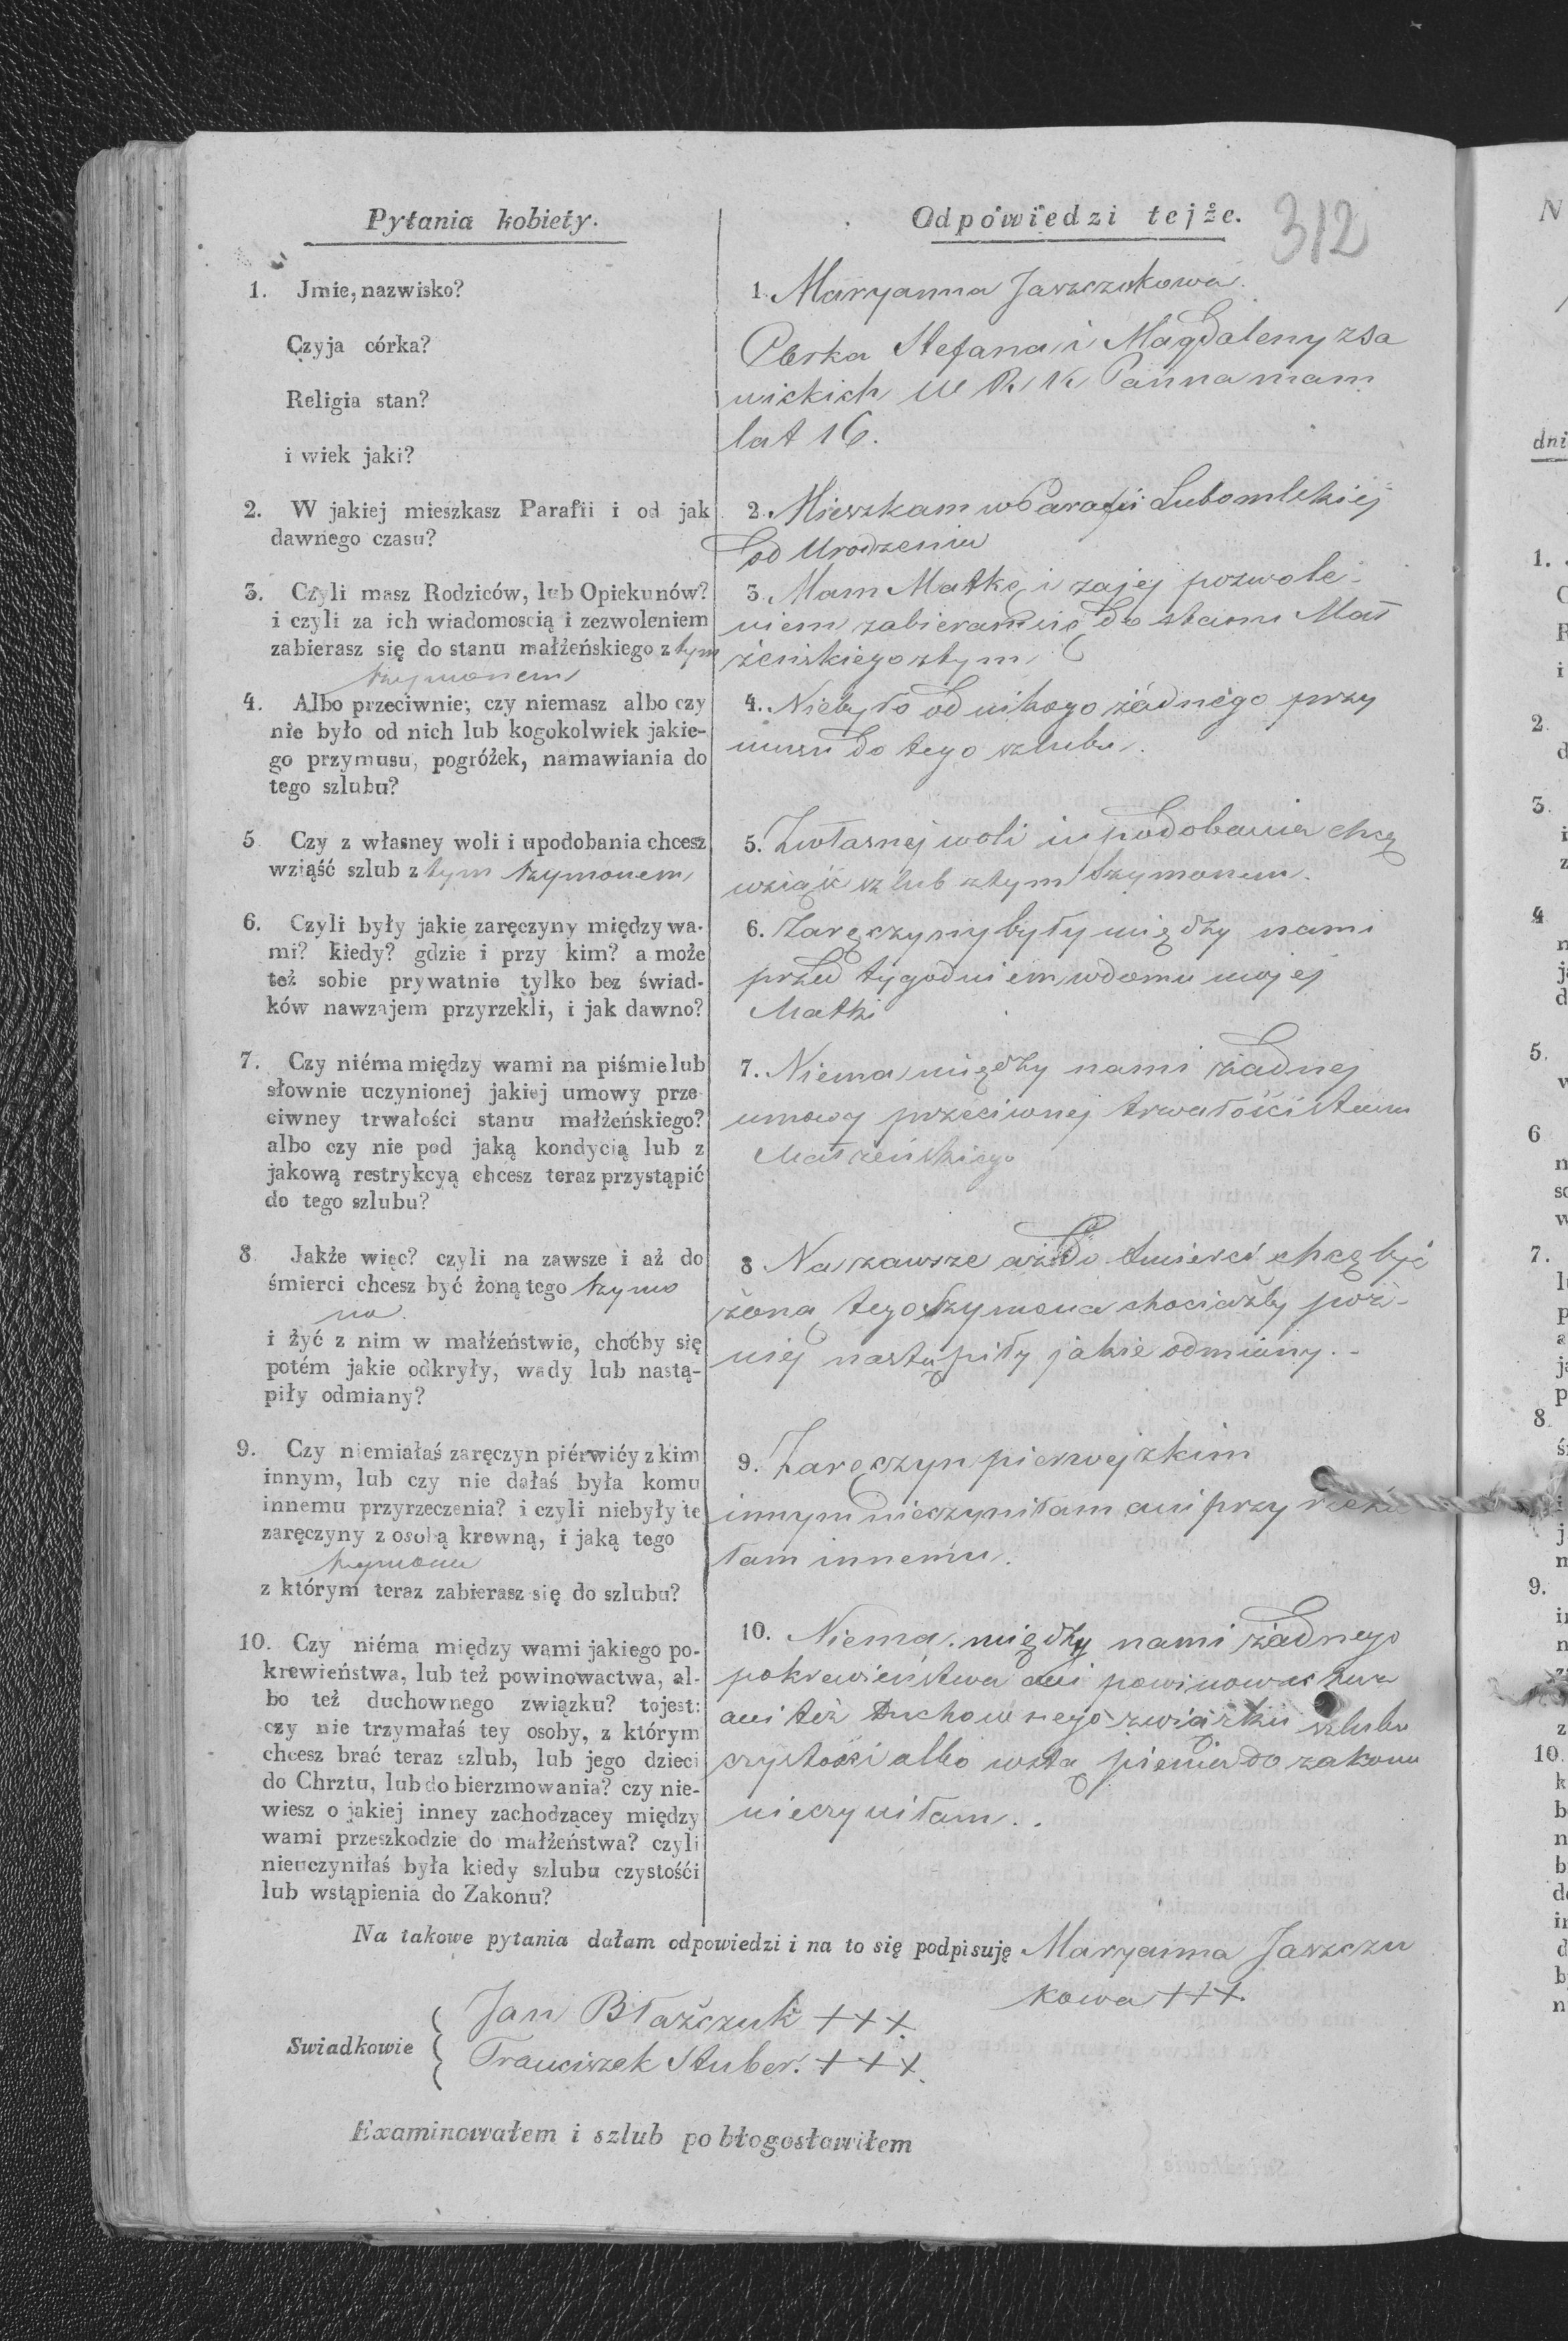 Pytania kobiety.
Odpowiedzi tejże.
312
1. Jmie, nazwisko?
Czyja córka?
Religia stan?
i wiek jaki?
1. Maryanna Jaszczukowa.
Corka Stefana i Magdaleny z Sa
wickich W R. K. Panna mam
lat 16.
2. W jakiej mieszkasz Parafii i od jak
dawnego czasu?
2. Mieszkam w Parafii Lubomlskiej
od Urodzenia
3. Czyli masz Rodziców, lub Opiekunów?
i czyli za ich wiadomoscią i zezwoleniem
zabierasz się do stanu małżeńskiego z tym
Szymonem
3. Mam Matkę i za jej pozwole-
niem zabieram się do stanu Mał
żeńskiego z tym
4. Albo przeciwnie; czy niemasz albo czy
nie było od nich lub kogokolwiek jakie-
go przymusu, pogróżek, namawiania do
tego szlubu?
4. Niebyło od nikogo żadnego przy
musu do tego szlubu.
5 Czy z własney woli i upodobania chcesz
wziąść szlub z tym Szymonem
5. Z własnej woli i upodobania chcę
wziąść szlub z tym Szymonem.
6. Czyli były jakie zaręczyny między wa-
mi? kiedy? gdzie i przy kim? a może
też sobie prywatnie tylko bez świad-
ków nawzajem przyrzekli, i jak dawno?
6. Zaręczyny były między nami
przed tygodniem w domu mojej
Matki
7. Czy niéma między wami na piśmie lub
słownie uczynionej jakiej umowy prze-
ciwney trwałości stanu małżeńskiego?
albo czy nie pod jaką kondycią lub z
jakową restrykcyą chcesz teraz przystąpić
do tego szlubu?
7. Niema między nami żadnej
umowy przeciwnej trwałości stanu
Małżeńskiego
8 Jakże więc? czyli na zawsze i aż do
śmierci chcesz być żoną tego Szymo
na.
i żyć z nim w małźeństwie, choćby się
potém jakie odkryły, wady lub nastą-
piły odmiany?
8 Na zawsze aż do Smierci chcę być
żoną tego Szymona chociażby póź-
niej nastąpiły jakie odmiany. -
9. Czy niemiałaś zaręczyn piérwiéy z kim
innym, lub czy nie dałaś była komu
innemu przyrzeczenia? i czyli niebyły te
zaręczyny z osobą krewną, i jaką tego
Szymona
z którym teraz zabierasz się do szlubu?
9. Zaręczyn pierwej z kim
innym nieczyniłam ani przy rzeka
łam innemu.
10. Czy niéma między wami jakiego po-
krewieństwa, lub też powinowactwa, al-
bo też duchownego związku? tojest:
czy nie trzymałaś tey osoby, z którym
chcesz brać teraz szlub, lub jego dzieci
do Chrztu, lub do bierzmowania? czy nie-
wiesz o jakiej inney zachodzącey między
wami przeszkodzie do małżeństwa? czyli
nieuczyniłaś była kiedy szlubu czystośći
lub wstąpienia do Zakonu?
10. Niema między nami żadnego
pokrewieństwa ani powinowactwa
ani też Duchownego związku szlubu
czystości albo wstąpienia do zakonu
nieczyniłam..
Na takowe pytania dałam odpowiedzi i na to się podpisuję Maryanna Jaszczu
kowa +++
Swiadkowie
Jan Błaszczuk +++.
Franciszek Stuber. +++.
Examinowałem i szlub pobłogosławiłem